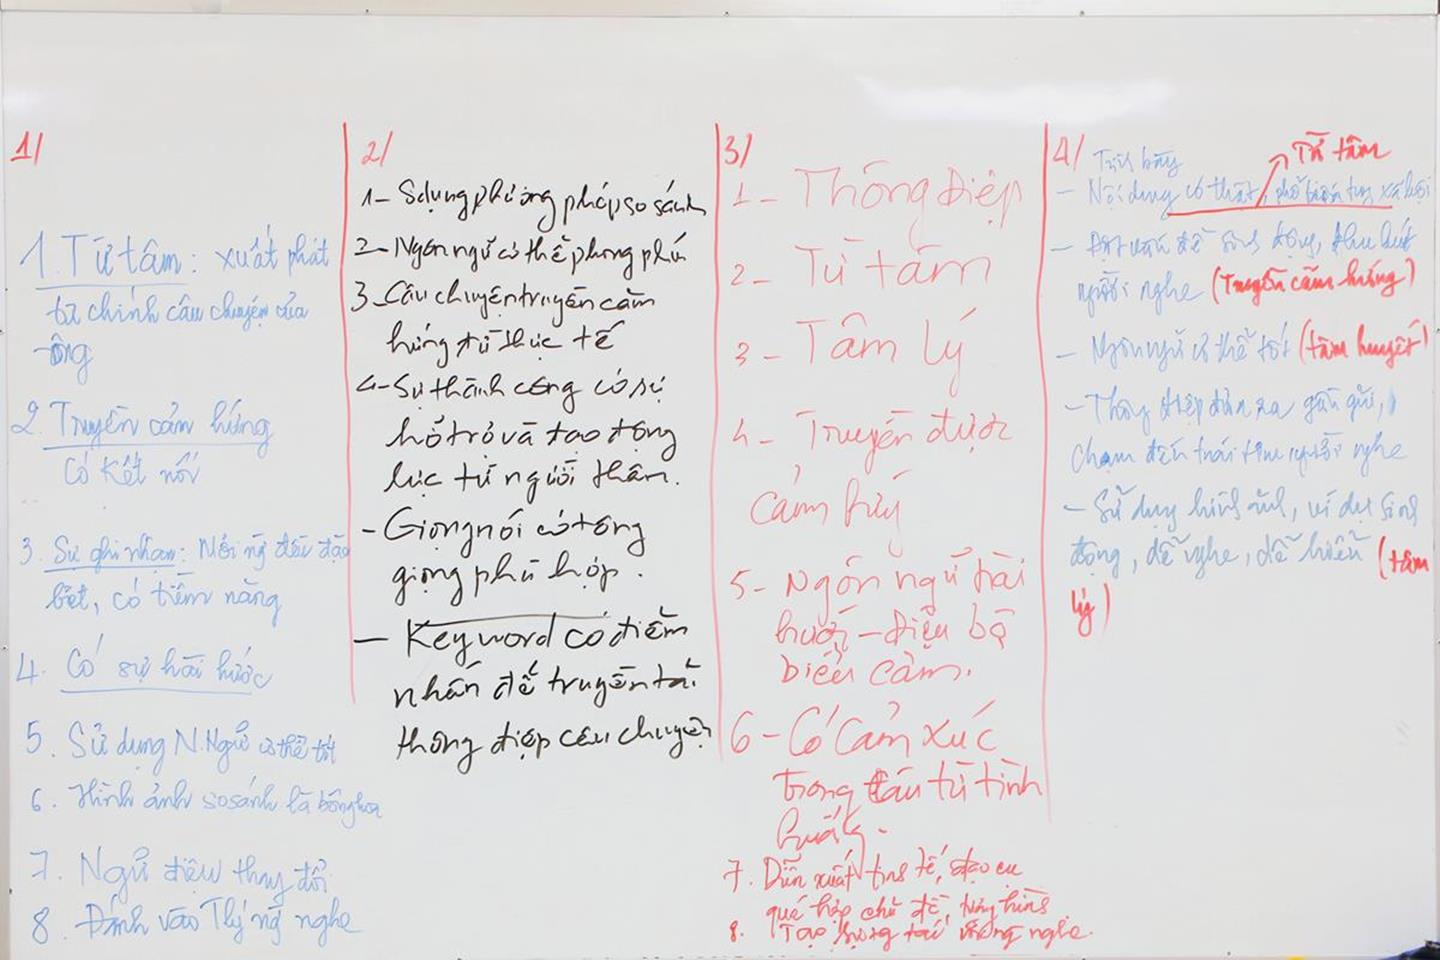 1/
1. Từ tâm: xuất phát
từ chính câu chuyện của
ông
2. Truyền cảm hứng
Có kết nối
3. Sự ghi nhận: Mỗi ng đều đặc
biệt, có tiềm năng
4. Có sự hài hước
5. Sử dụng N.Ngữ cơ thể tốt
6. Hình ảnh so sánh là bông hoa
7. Ngữ điệu thay đổi
8. Đánh vào Tlý ng nghe
2/
1- Sdụng phương pháp so sánh
2- Ngôn ngữ cơ thể phong phú
3- Câu chuyện truyền cảm
hứng từ thực tế
4- Sự thành công có sự
hỗ trợ và tạo động
lực từ người thân.
- Giọng nói có tông
giọng phù hợp.
- Keyword có điểm
nhấn để truyền tải
thông điệp câu chuyện
3/
1- Thông điệp
2- Từ tâm
3- Tâm lý
4- Truyền được
cảm hứg
5- Ngôn ngữ hài
hước - điệu bộ
biểu cảm.
6- Có Cảm xúc
trong câu từ tình
huống.
7. Diễn xuất tinh tế, đạo cụ
hợp chủ đề,
8. Tạo tới nghe.
4/ Trình bày
Từ tâm
- Nội dung có thật, xã hội
- Đặt vấn đề sinh động, thu hút
người nghe (Truyền cảm hứng)
- Ngôn ngữ cơ thể tốt (tâm huyết)
- Thông điệp đưa ra gần gũi,
chạm đến trái tim người nghe
- Sử dụng hình ảnh, ví dụ sinh
động, dễ nghe, dễ hiểu (tâm
lý)